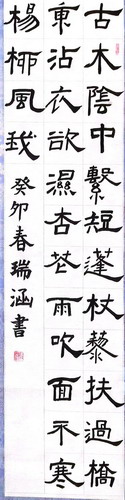 古木陰中繫短蓬杖藜扶過橋
東沾衣欲濕杏花雨吹面不寒
楊柳風我
癸卯春瑞涵書